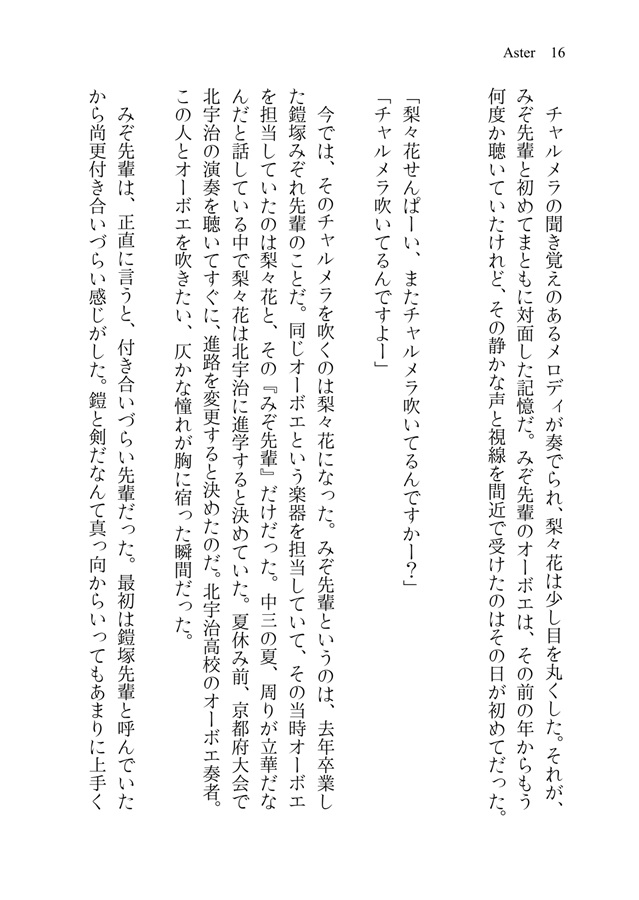 Aster 16
チャルメラの聞き覚えのあるメロディが奏でられ、梨々花は少し目を丸くした。それが、
みぞ先輩と初めてまともに対面した記憶だ。みぞ先輩のオーボエは、その前の年からもう
何度か聴いていたけれど、その静かな声と視線を間近で受けたのはその日が初めてだった。
「梨々花せんぱーい、またチャルメラ吹いてるんですかー?」
「チャルメラ吹いてるんですよー」
今では、そのチャルメラを吹くのは梨々花になった。みぞ先輩というのは、去年卒業し
た鎧塚みぞれ先輩のことだ。同じオーボエという楽器を担当していて、その当時オーボエ
を担当していたのは梨々花と、その『みぞ先輩』だけだった。中三の夏、周りが立華だな
んだと話している中で梨々花は北宇治に進学すると決めていた。夏休み前、京都府大会で
北宇治の演奏を聴いてすぐに、進路を変更すると決めたのだ。北宇治高校のオーボエ奏者。
この人とオーボエを吹きたい、仄かな憧れが胸に宿った瞬間だった。
みぞ先輩は、正直に言うと、付き合いづらい先輩だった。最初は鎧塚先輩と呼んでいた
から尚更付き合いづらい感じがした。鎧と剣だなんて真っ向からいってもあまりに上手く